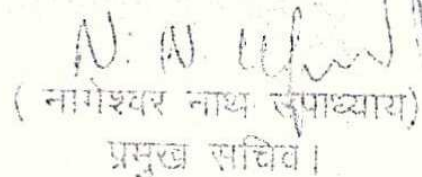 N. N.
( नागेश्वर नाथ उपाध्याय)
प्रमुख सचिव।